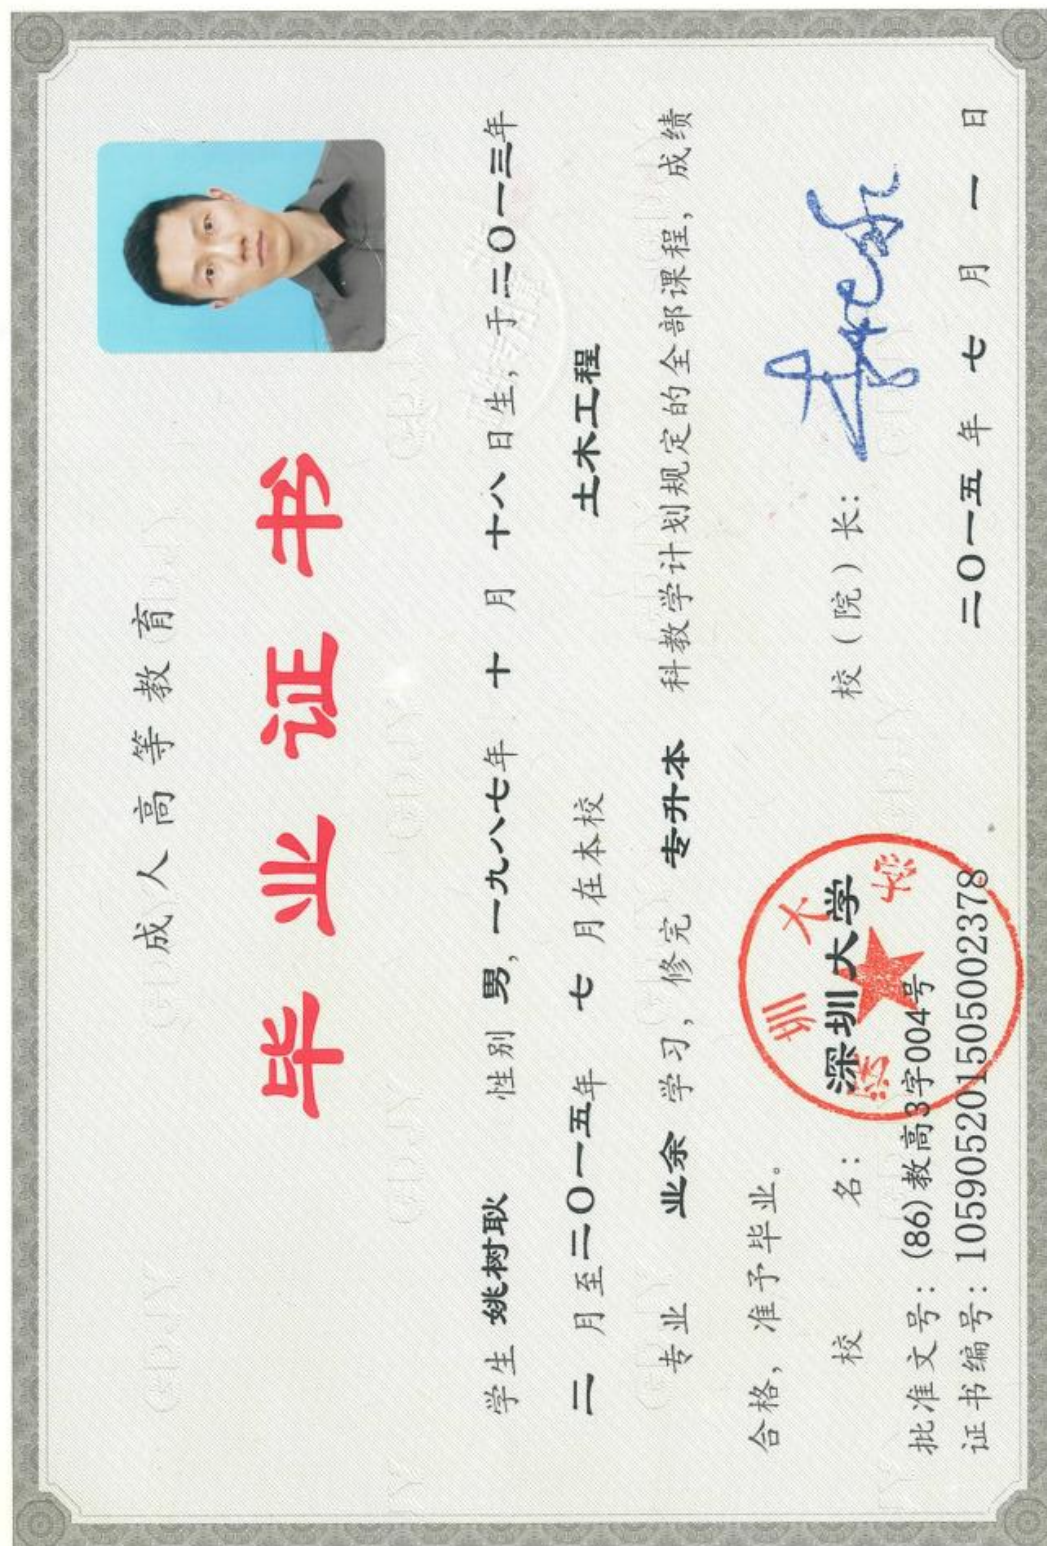 成人高等教育
毕业证书
学生 姚树耿 性别 男，一九八七年 十 月 十八 日生，于二〇一三年
二 月至二〇一五年 七 月在本校 土木工程
专业 业余 学习，修完 专升本 科教学计划规定的全部课程，成绩
合格，准予毕业。
校 名： 深圳大学 校（院）长：
批准文号：(86)教高3字004号
证书编号：105905201505002378
二〇一五 年 七 月 一 日
深圳大学